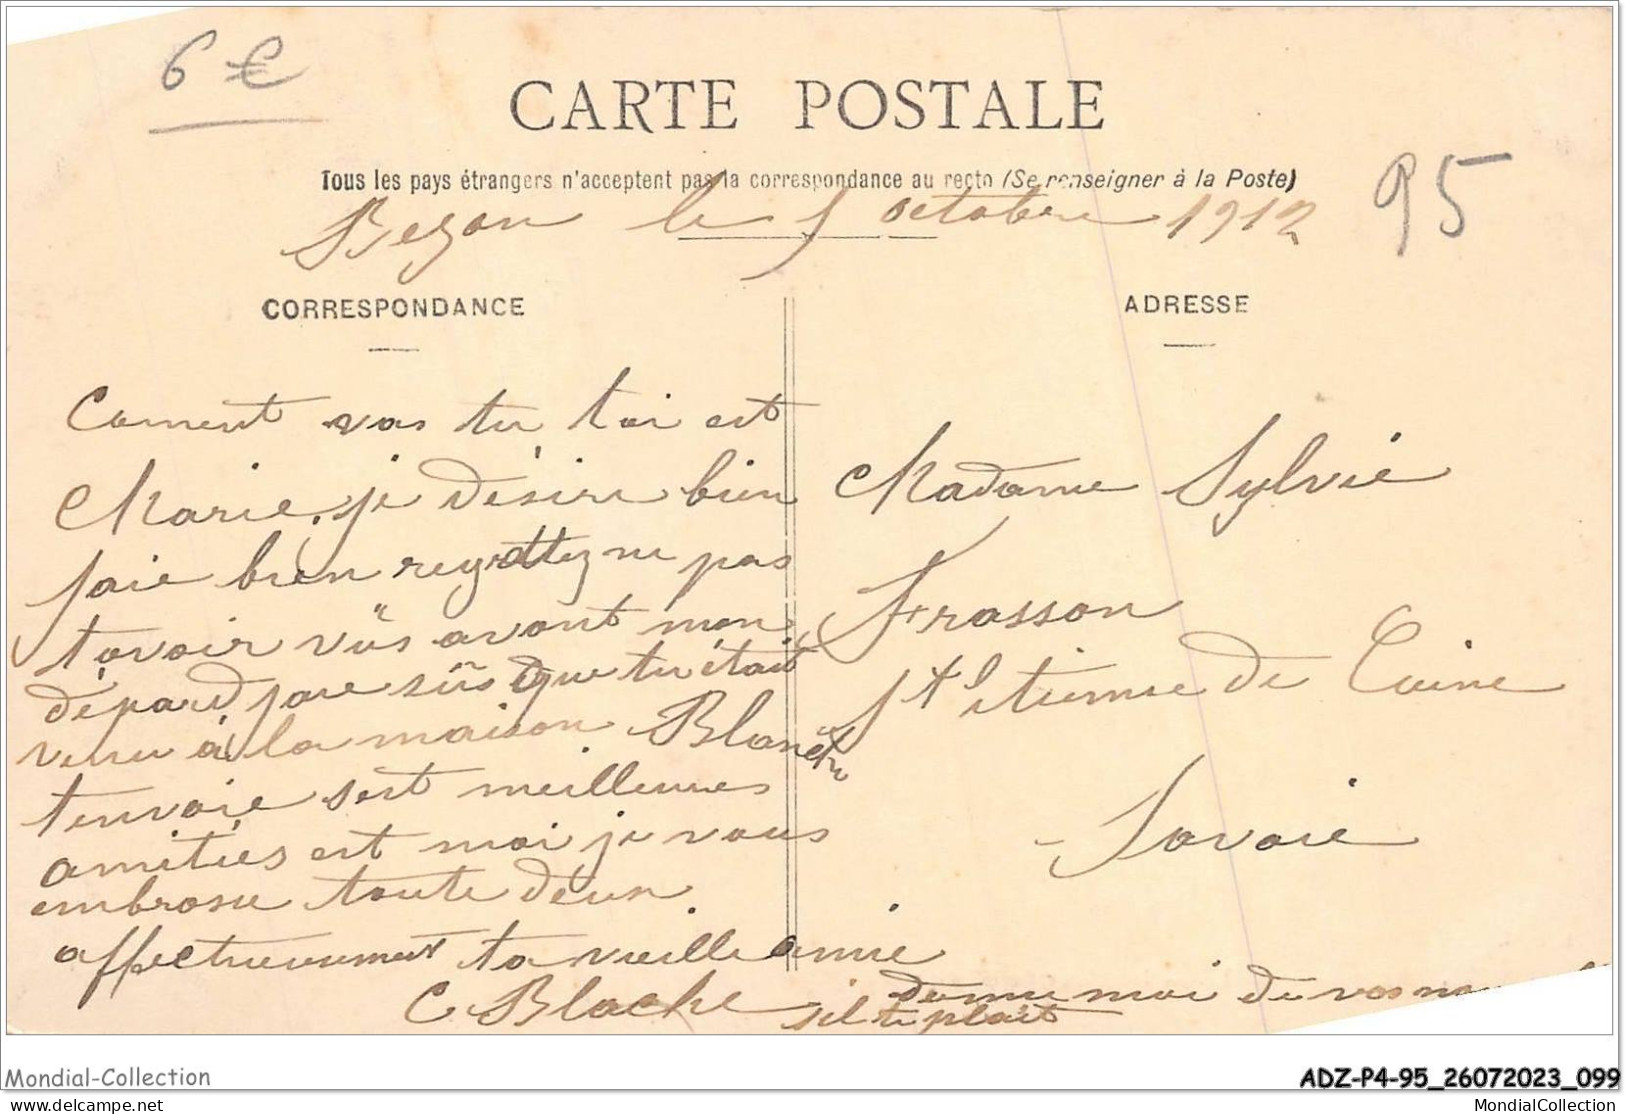 6 €
CARTE POSTALE
Tous les pays étrangers n'acceptent pas la correspondance au recto (Se renseigner à la Poste)
95
Bezon le 5 octobre 1912
CORRESPONDANCE
Coment vas tu toi est
Marie. je désire bien
jaie bien regrettez ne pas
tavoir vüs avant mon
dépard jaie sûs que tu étais
venu à la maison Blanche
tenvoie sest meilleures
amitiés est moi je vous
embrasse toute deux.
affectueusement ta vieille amie
C Blache
donne moi de vos
sil te plait
ADRESSE
Madame Sylvie
Frasson
St Etienne de Cuine
Savoie
Mondial-Collection
delcampe.net
ADZ-P4-95_26072023_099
MondialCollection